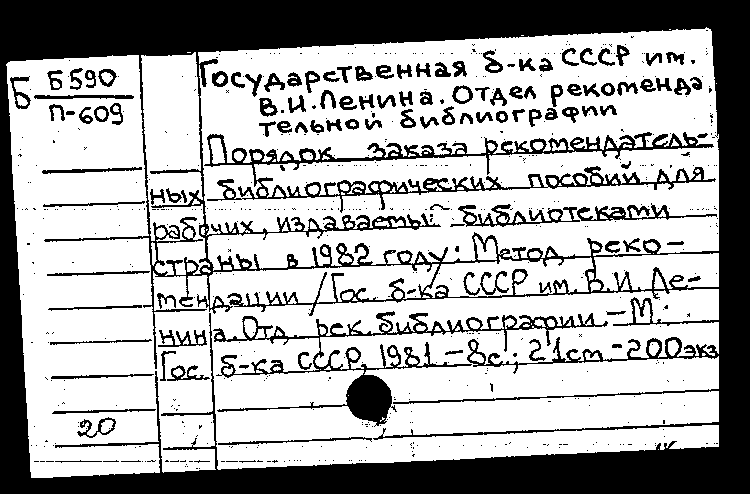 Б Б590
П-609
Государственная б-ка СССР им.
В.И.Ленина. Отдел рекоменда.
тельной библиографии
Порядок заказа рекомендатель-
ных библиографических пособий для
рабочих, издаваемый библиотеками
страны в 1982 году: Метод. реко-
мендации / Гос. б-ка СССР им. В.И. Ле-
нина. Отд. рек. библиографии. - М.:
Гос. б-ка СССР, 1981. - 8с.; 21см - 200экз
20